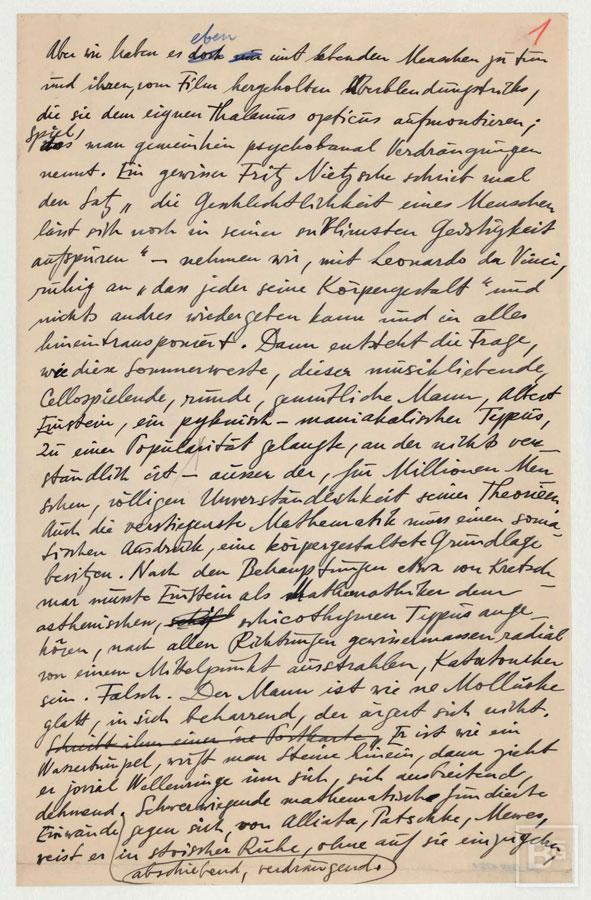 1
eben
Aber wir haben es doch nur mit lebenden Menschen zu tun
und ihren, vom Film hergeholten Überblendungstricks,
die sie dem eignen Thalamus opticus aufmontieren;
Spiel,
das man gemeinhin psychobanal Verdrängungen
nennt. Ein gewisser Fritz Nietzsche schrieb mal
den Satz „die Geschlechtlichkeit eines Menschen
lässt sich noch in seiner sublimsten Geistigkeit
aufspüren" – nehmen wir, mit Leonardo da Vinci,
ruhig an „dass jeder seine Körpergestalt" und
nichts andres wiedergeben kann und in alles
hineintransponiert. Dann entsteht die Frage,
wie diese Sommerweste, dieser musikliebende,
Cellospielende, runde, gemütliche Mann, Albert
Einstein, ein pyknisch-maniakalischer Typus,
zu einer Popularität gelangte, an der nichts ver-
ständlich ist – ausser der, für Millionen Men-
schen, völligen Unverständlichkeit seiner Theorien.
Auch die verstiegenste Mathematik muss einen soma-
tischen Ausdruck, eine körpergestaltete Grundlage
besitzen. Nach den Behauptungen etwa von Kretsch-
mar müsste Einstein als Mathematiker dem
asthenischen, schizothymen Typus ange-
hören, nach allen Richtungen gewissermassen radial
von einem Mittelpunkt ausstrahlen, Katatoniker
sein. Falsch. Der Mann ist wie ne Molluske
glatt, in sich beharrend, der ärgert sich nicht.
Schreibt ihm einer ne Postkarte, Er ist wie ein
Wassertümpel, wirft man Steine hinein, dann zieht
er jovial Wellenringe um sich, sich ausbreitend,
dehnend. Schwerwiegende mathematisch fundierte
Einwände gegen sich, von Alliata, Patschke, Mewes,
weist er in stoischer Ruhe, ohne auf sie einzugehen,
abschiebend, verdrängend.